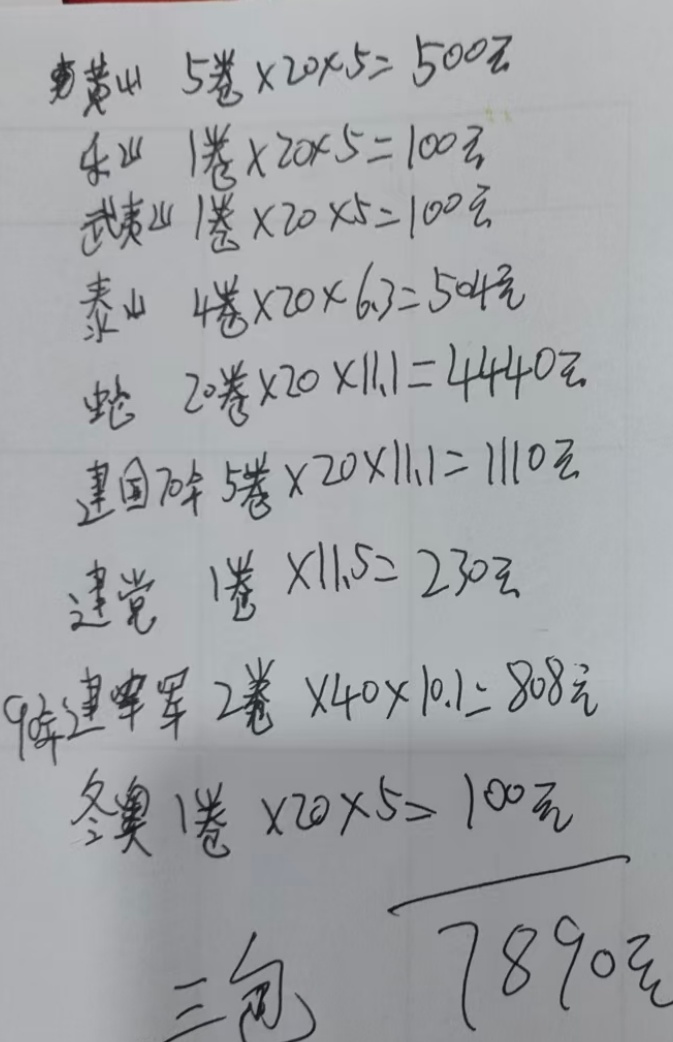 黄山 5卷×20×5=500元
乐山 1卷×20×5=100元
武夷山 1卷×20×5=100元
泰山 4卷×20×6.3=504元
蛇 20卷×20×11.1=4440元
建国70年 5卷×20×11.1=1110元
建党 1卷 ×11.5=230元
90年建军 2卷 ×40×10.1=808元
冬奥 1卷 ×20×5=100元
三包 7890元